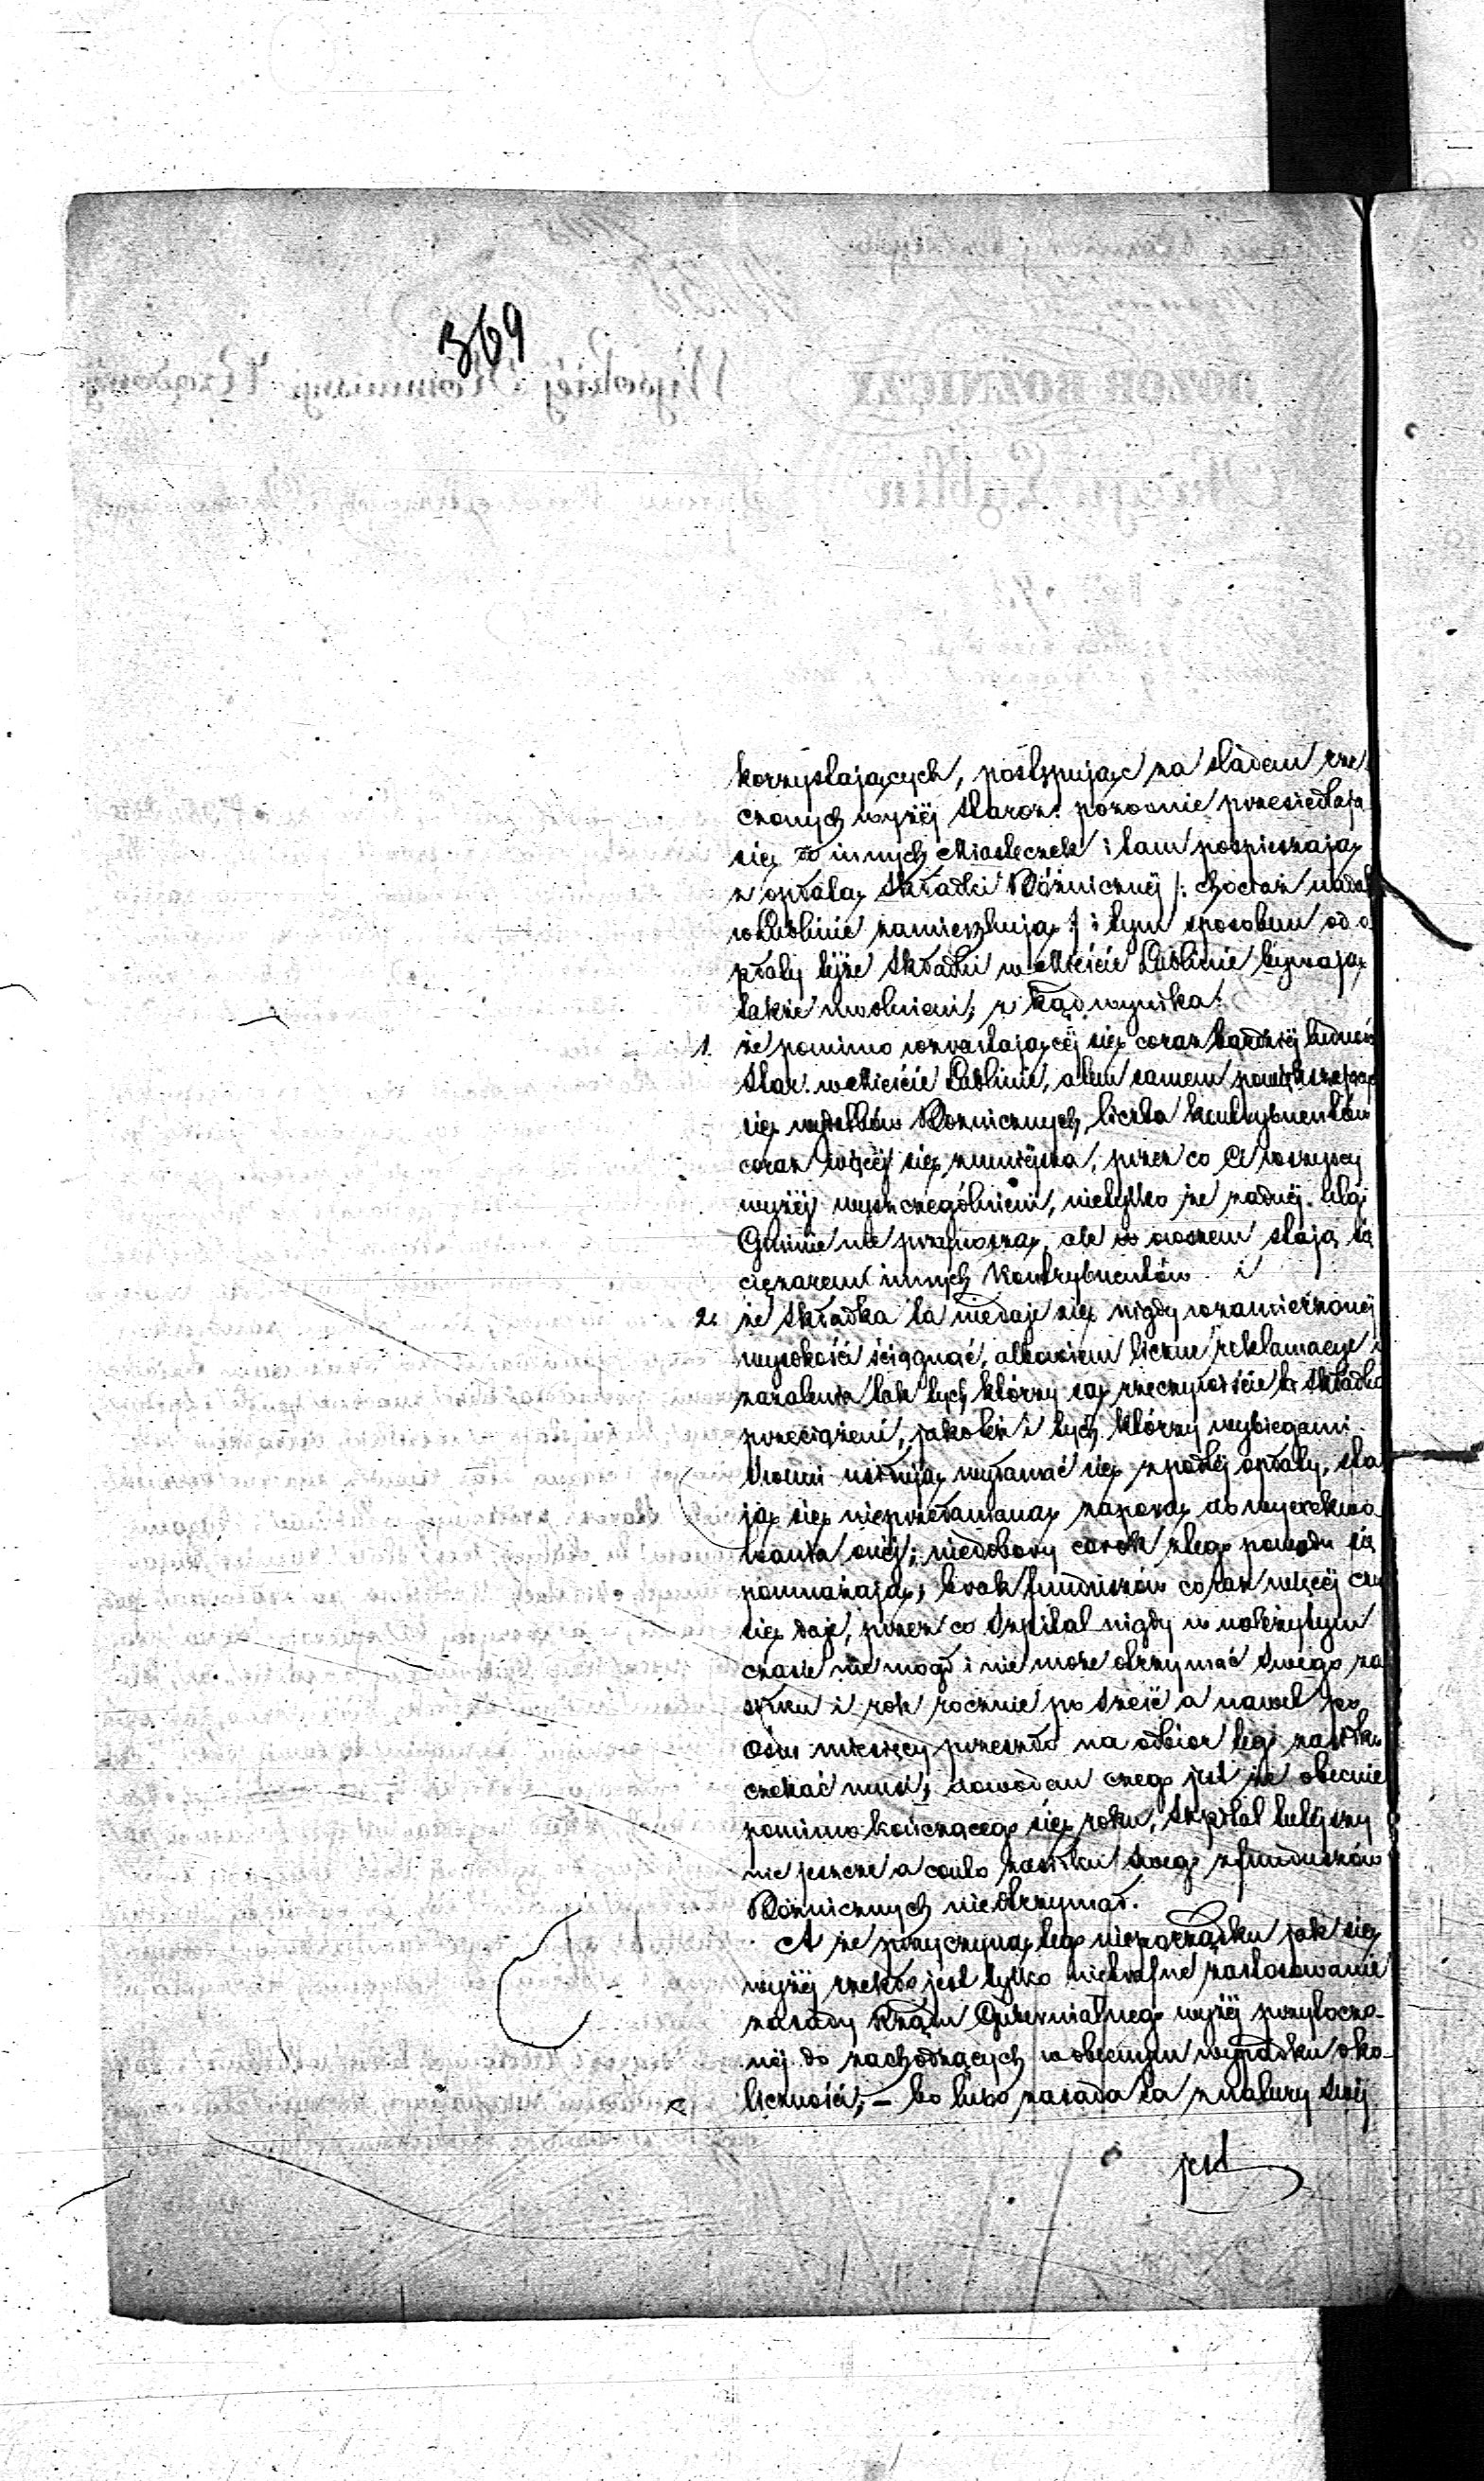 369
korzystających, postępując za śladem rze
czonych wyżéj Staroz: pozornie przesiedlają
się do innych Miasteczek i tam pospieszają
z opłatą Składki Bóżnicznéj /: chociaż nadal
w Lublinie zamieszkują :/ i tym sposobem od o
płaty téjże Składki w Mieście Lublinie bywają
także uwolnieni; z kąd wynika:
1. że pomimo wzrastającéj się coraz bardziéj ludnoś
Star. w Mieście Lublinie, a tem samem powiększając
się wydatków Bóżnicznych, liczba kontrybuentów
coraz więcéj się zmniejsza, przez co Ci wszyscy
wyżéj wyszczególnieni, nietylko że żadnéj ulgi
Gminie nie przynoszą, ale owszem stają się
ciężarem innych Kontrybuentów i
2. że Składka ta niedaje się nigdy w zamierzonéj
wysokości ściągnąć, albowiem liczne reklamacye i
zażalenia tak tych, którzy są rzeczywiście tą Składką
przeciążeni, jakoteż i tych, którzy wybiegami
usiłują wyłamać się z pod téj opłaty, sta
ją się nieprzełamaną zaporą do wyexekwo
wania onéj; niedobory corok z tego powodu się
pomnażają, brak funduszów coraz więcéj czu
się daje, przez co Szpital nigdy w należytym
czasie nie mógł i nie może otrzymać swego za
siłku i rok rocznie po sześć a nawet po
ośm miesięcy przeszło na odbiór tego zasiłku
czekać musi; dowodem czego jest że obecnie
pomimo kończącego się roku, Szpital tutéjszy
nic jeszcze a conto zasiłku swego z funduszów
Bóżnicznych nieotrzymał.
A że przyczyną tego nieporządku jak się
wyżéj rzekło jest tylko nietrafne zastosowanie
zasady Rządu Gubernialnego wyżéj przytoczo-
néj do zachodzących w obecnym wypadku oko-
liczności; - bo lubo zasada ta z natury swéj
jest